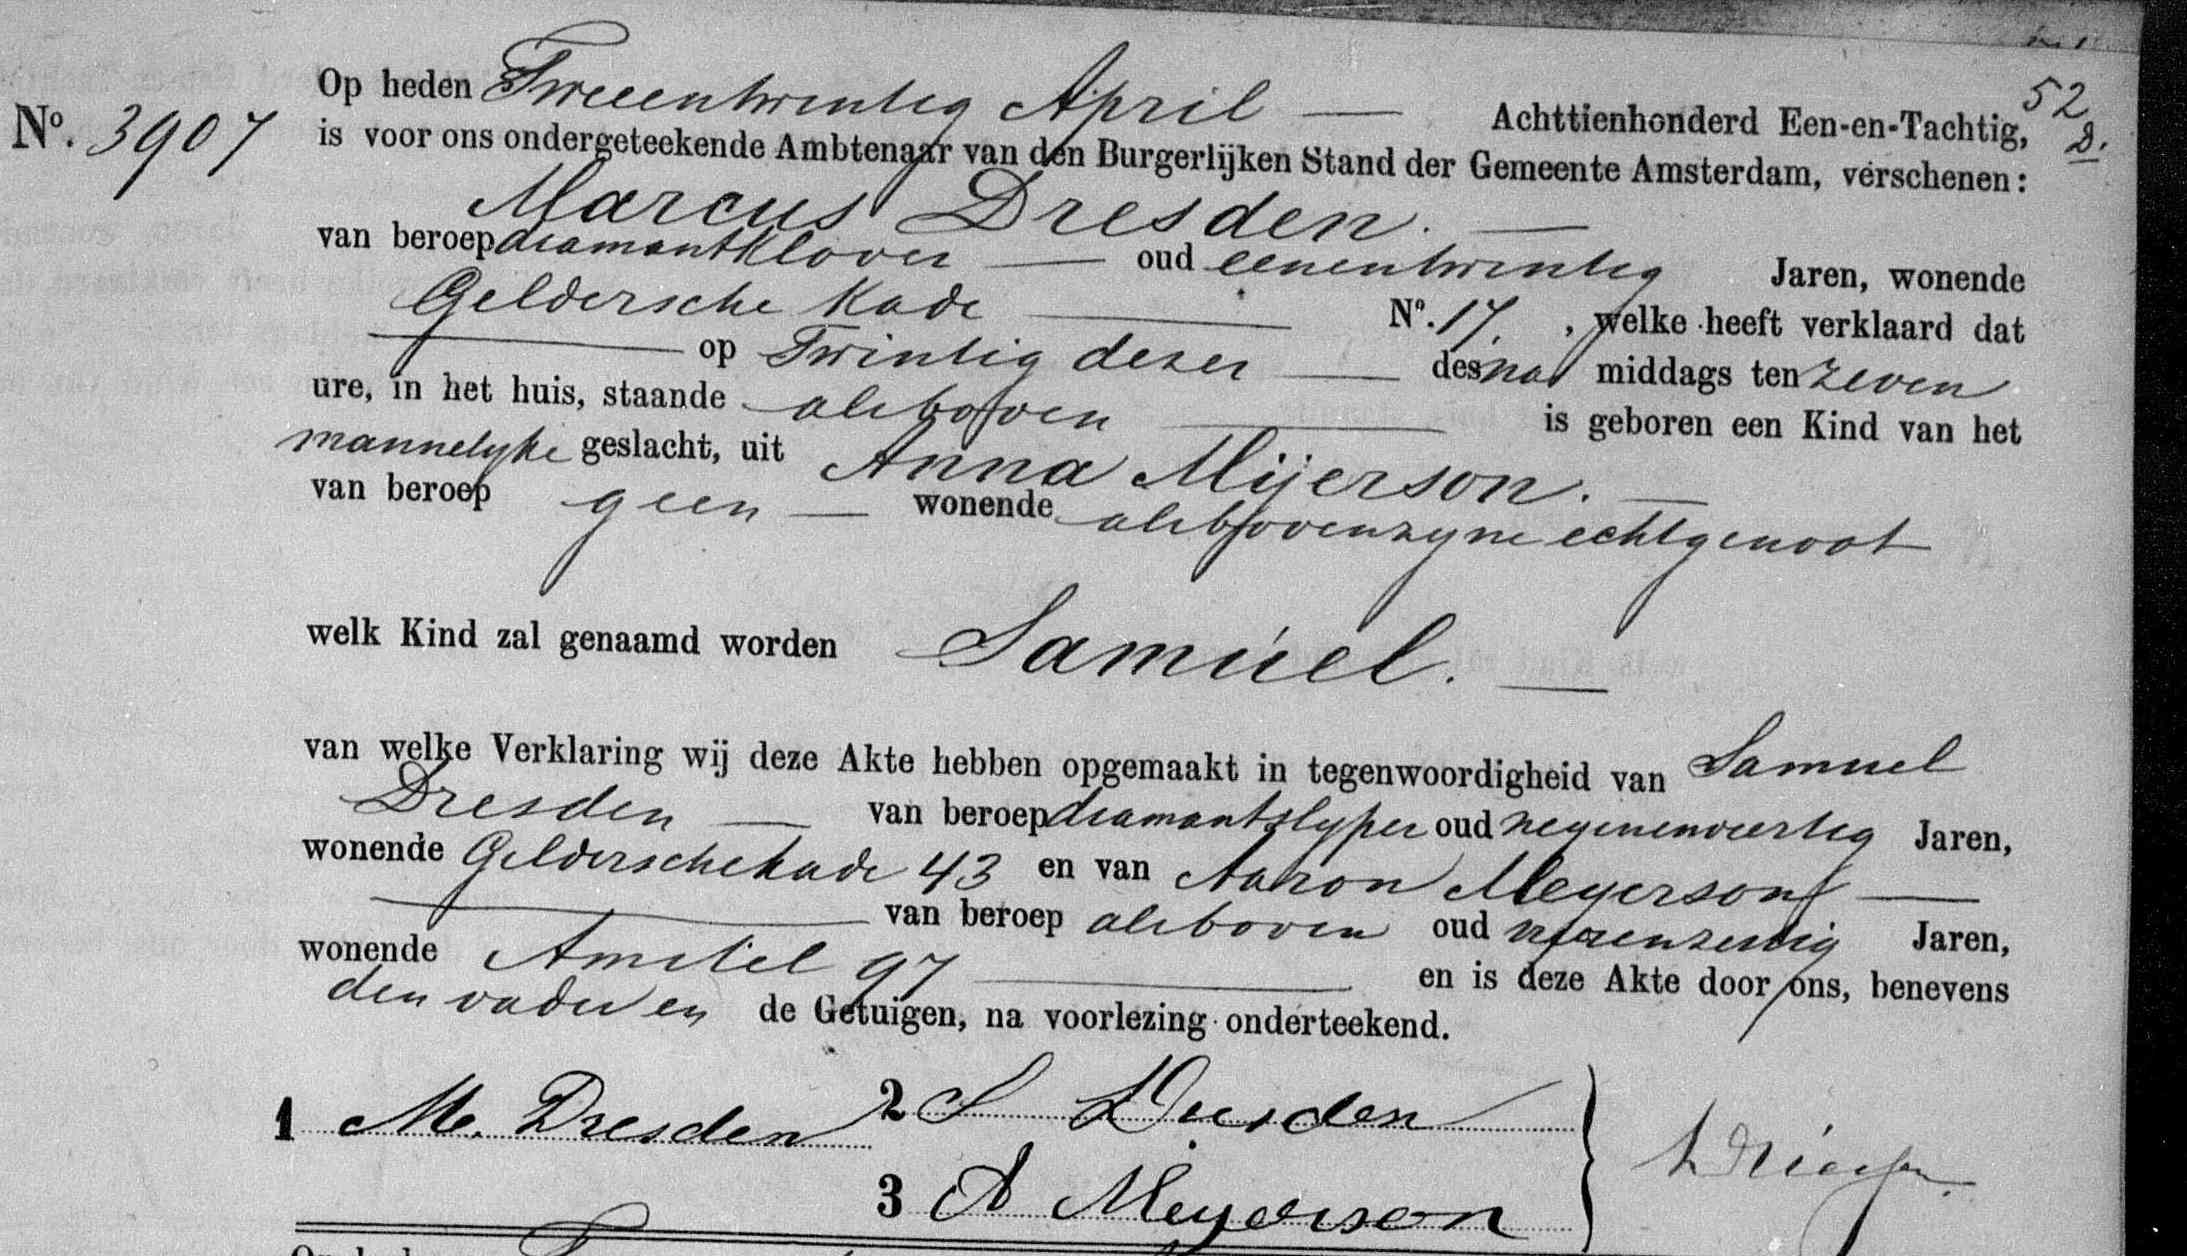 52
Op heden Tweeentwintig April — Achttienhonderd Een-en-Tachtig, 2.
No. 3907 is voor ons ondergeteekende Ambtenaar van den Burgerlijken Stand der Gemeente Amsterdam, verschenen:
Marcus Dresden. —
van beroep diamantklover — oud eenentwintig Jaren, wonende
Geldersche Kade — No. 17. , welke heeft verklaard dat
— op Twintig dezer — des na middags ten zeven
ure, in het huis, staande als boven — is geboren een Kind van het
mannelyke geslacht, uit Anna Mijerson. —
van beroep geen — wonende als boven zyne echtgenoot
welk Kind zal genaamd worden Samúel. —
van welke Verklaring wij deze Akte hebben opgemaakt in tegenwoordigheid van Samuel
Dresden — van beroep diamantslyper oud negenenveertig Jaren,
wonende Gelderschekade 43 en van Aaron Meyerson —
— van beroep als boven oud Jaren,
wonende Amstel 97 — en is deze Akte door ons, benevens
den vader en de Getuigen, na voorlezing onderteekend.
1 M. Dresden 2 S Dresden
3 A Meyerson